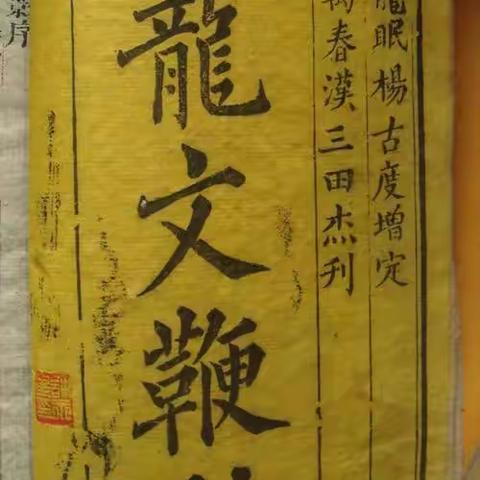 龍眠楊古度增定
萬春漢三田杰刊
龍文鞭
序